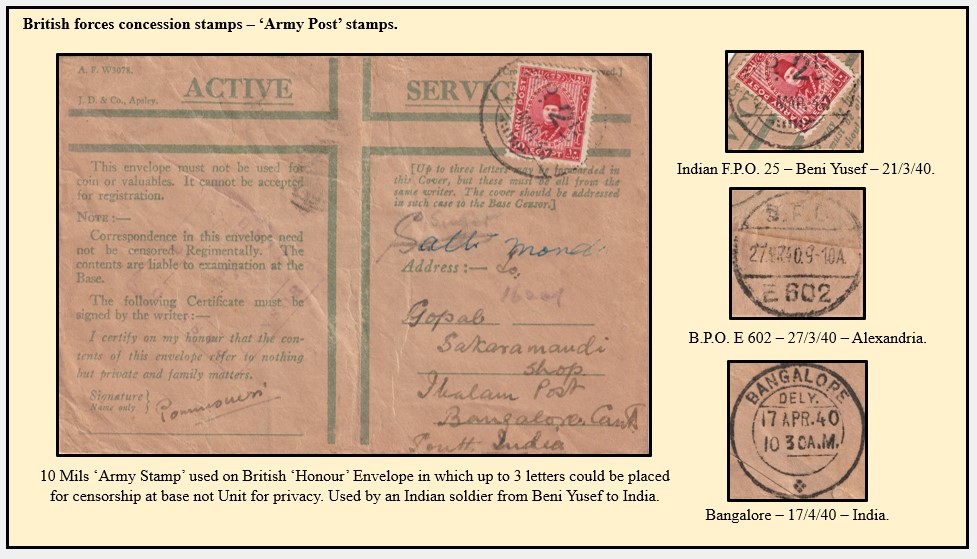 British forces concession stamps – ‘Army Post’ stamps.
A. F. W3078.
J. D. & Co., Apsley.
ACTIVE
SERVICE
This envelope must not be used for
coin or valuables. It cannot be accepted
for registration.
NOTE:—
Correspondence in this envelope need
not be censored Regimentally. The
contents are liable to examination at the
Base.
The following Certificate must be
signed by the writer:—
I certify on my honour that the con-
tents of this envelope refer to nothing
but private and family matters.
Signature }
Name only }
[Up to three letters may be forwarded in
this Cover, but these must be all from the
same writer. The cover should be addressed
in such case to the Base Censor.]
Address:—
Gopal
Sakaramandi
Shop
Post
Bangalore Cantt
South India
10 Mils ‘Army Stamp’ used on British ‘Honour’ Envelope in which up to 3 letters could be placed
for censorship at base not Unit for privacy. Used by an Indian soldier from Beni Yusef to India.
Indian F.P.O. 25 – Beni Yusef – 21/3/40.
E 602
B.P.O. E 602 – 27/3/40 – Alexandria.
BANGALORE
DELY.
17 APR.40
10 30A.M.
Bangalore – 17/4/40 – India.